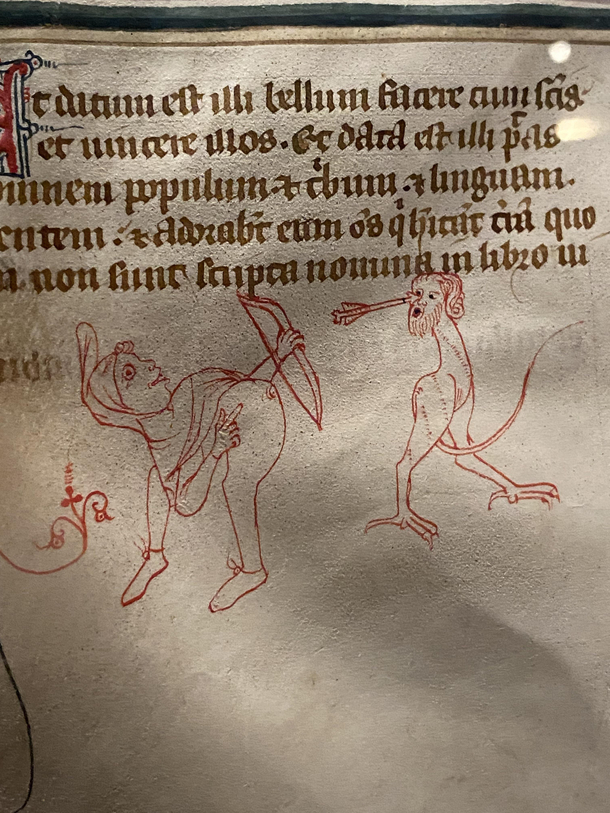 Et datum est illi bellum facere cum scis
et uincere illos. Et data est illi ptas
mnem populum ⁊ tbum ⁊ linguam.
entem : ⁊ adorabt eum os q hitat tra quo
non sunt scripta nomina in libro ui